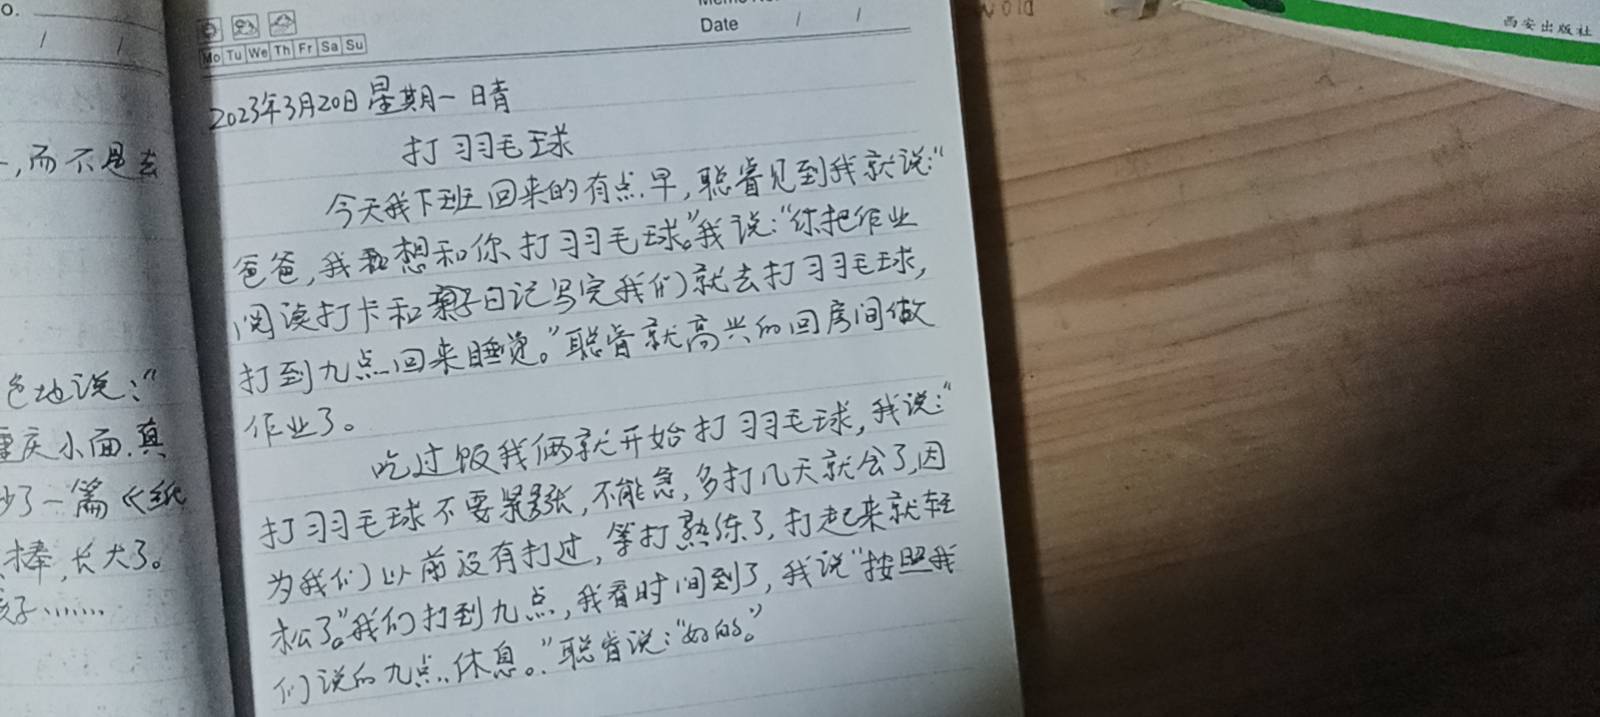 o.
/ /
, 而不是去
色地说：“
重庆小面.真
抄了一篇《纸
棒,长大了。
孩子……
Mo Tu We Th Fr Sa Su
Date / /
2023年3月20日 星期一 晴
打羽毛球
今天我下班回来的有点早,聪睿见到我就说：“
爸爸,我想和你打羽毛球。”我说：“你把作业
阅读打卡和亲子日记写完我们就去打羽毛球,
打到九点回来睡觉。”聪睿就高兴的回房间做
作业了。
吃过饭我俩就开始打羽毛球,我说：“
打羽毛球不要紧张,不能急,多打几天就会了,因
为我们以前没有打过,等打熟练了,打起来就轻
松了。”我们打到九点,我看时间到了,我说“按照我
们说的九点休息。”聪睿说：“好的。”
西安出版社